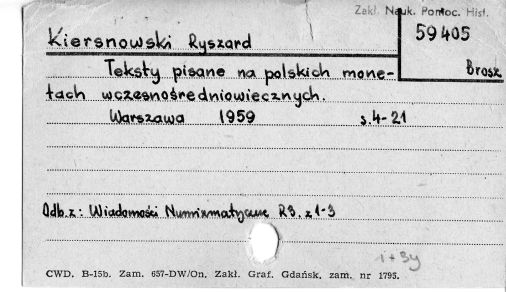 Zakł. Nauk. Pomoc. Hist.
59405
Kiersnowski Ryszard
Brosz.
Teksty pisane na polskich mone-
tach wczesnośredniowiecznych.
Warszawa 1959 s.4-21
Odb.z: Wiadomości Numizmatyczne R3. z1-3
i + 3y
CWD. B-15b. Zam. 657-DW/On. Zakł. Graf. Gdańsk, zam. nr 1795.